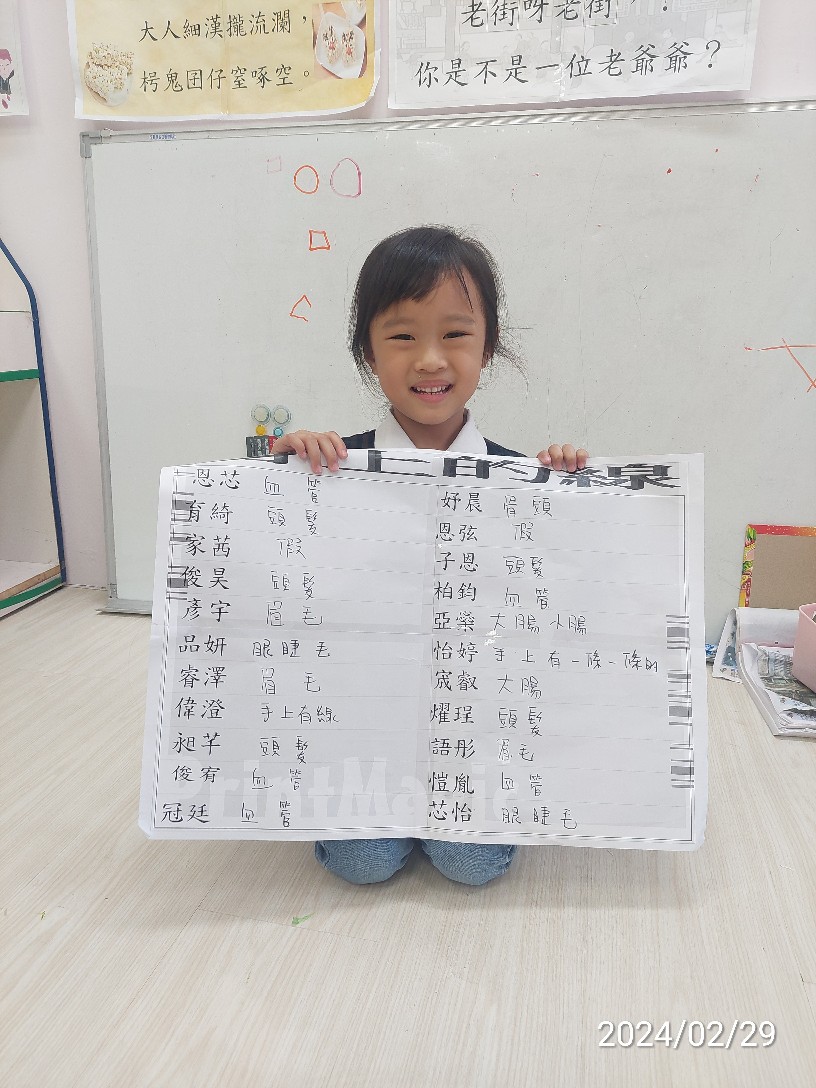 大人細漢攏流瀾，
椁鬼囝仔窒啄空。
老街呀老街，！
你是不是一位老爺爺？
上的線
恩芯 血管
育綺 頭髮
家茜 假
俊昊 頭髮
彥宇 眉毛
品妍 眼睫毛
睿澤 眉毛
偉澄 手上有線
昶芊 頭髮
俊宥 血管
冠廷 血管
妤晨 骨頭
恩弦 假
子恩 頭髮
柏鈞 血管
亞藥 大腸 小腸
怡婷 手上有一條一條的
宬叡 大腸
燿珵 頭髮
語彤 眉毛
愷胤 血管
芯怡 眼睫毛
2024/02/29